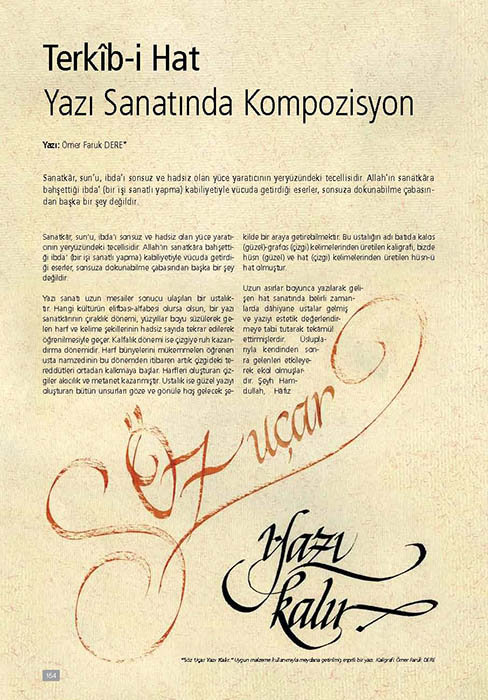 Terkîb-i Hat
Yazı Sanatında Kompozisyon
Yazı: Ömer Faruk DERE*
Sanatkâr, sun’u, ibda’ı sonsuz ve hadsiz olan yüce yaratıcının yeryüzündeki tecellisidir. Allah’ın sanatkâra
bahşettiği ibda’ (bir işi sanatlı yapma) kabiliyetiyle vücuda getirdiği eserler, sonsuza dokunabilme çabasın-
dan başka bir şey değildir.
Sanatkâr, sun’u, ibda’ı sonsuz ve hadsiz olan yüce yaratı-
cının yeryüzündeki tecellisidir. Allah’ın sanatkâra bahşetti-
ği ibda’ (bir işi sanatlı yapma) kabiliyetiyle vücuda getirdi-
ği eserler, sonsuza dokunabilme çabasından başka bir şey
değildir.
Yazı sanatı uzun mesailer sonucu ulaşılan bir ustalık-
tır. Hangi kültürün elifbası-alfabesi olursa olsun, bir yazı
sanatkârının çıraklık dönemi, yüzyıllar boyu süzülerek ge-
len harf ve kelime şekillerinin hadsiz sayıda tekrar edilerek
öğrenilmesiyle geçer. Kalfalık dönemi ise çizgiye ruh kazan-
dırma dönemidir. Harf bünyelerini mükemmelen öğrenen
usta namzedinin bu dönemden itibaren artık çizgideki te-
reddütleri ortadan kalkmaya başlar. Harfleri oluşturan çiz-
giler akıcılık ve metanet kazanmıştır. Ustalık ise güzel yazıyı
oluşturan bütün unsurları göze ve gönüle hoş gelecek şe-
kilde bir araya getirebilmektir. Bu ustalığın adı batıda kalos
(güzel)-grafos (çizgi) kelimelerinden üretilen kaligrafi, bizde
hüsn (güzel) ve hat (çizgi) kelimelerinden üretilen hüsn-ü
hat olmuştur.
Uzun asırlar boyunca yazılarak geli-
şen hat sanatında belirli zaman-
larda dâhiyane ustalar gelmiş
ve yazıyı estetik değerlendir-
meye tabi tutarak tekâmül
ettirmişlerdir. Üslupla-
rıyla kendinden son-
ra gelenleri etkileye-
rek ekol olmuşlar-
dır. Şeyh Ham-
dullah, Hâfız
Söz uçar
Yazı
kalır
"Söz Uçar Yazı Kalır." Uygun malzeme kullanımıyla meydana getirilmiş esprili bir yazı. Kaligrafi: Ömer Faruk DERE
154